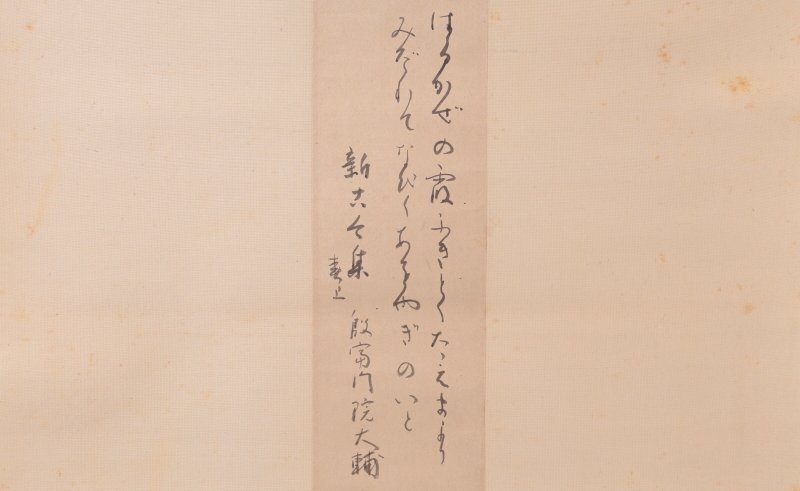 はるかぜの霞ふきとくたえまより
みだれてなびくあをやぎのいと
新古今集 春上 殷富門院大輔